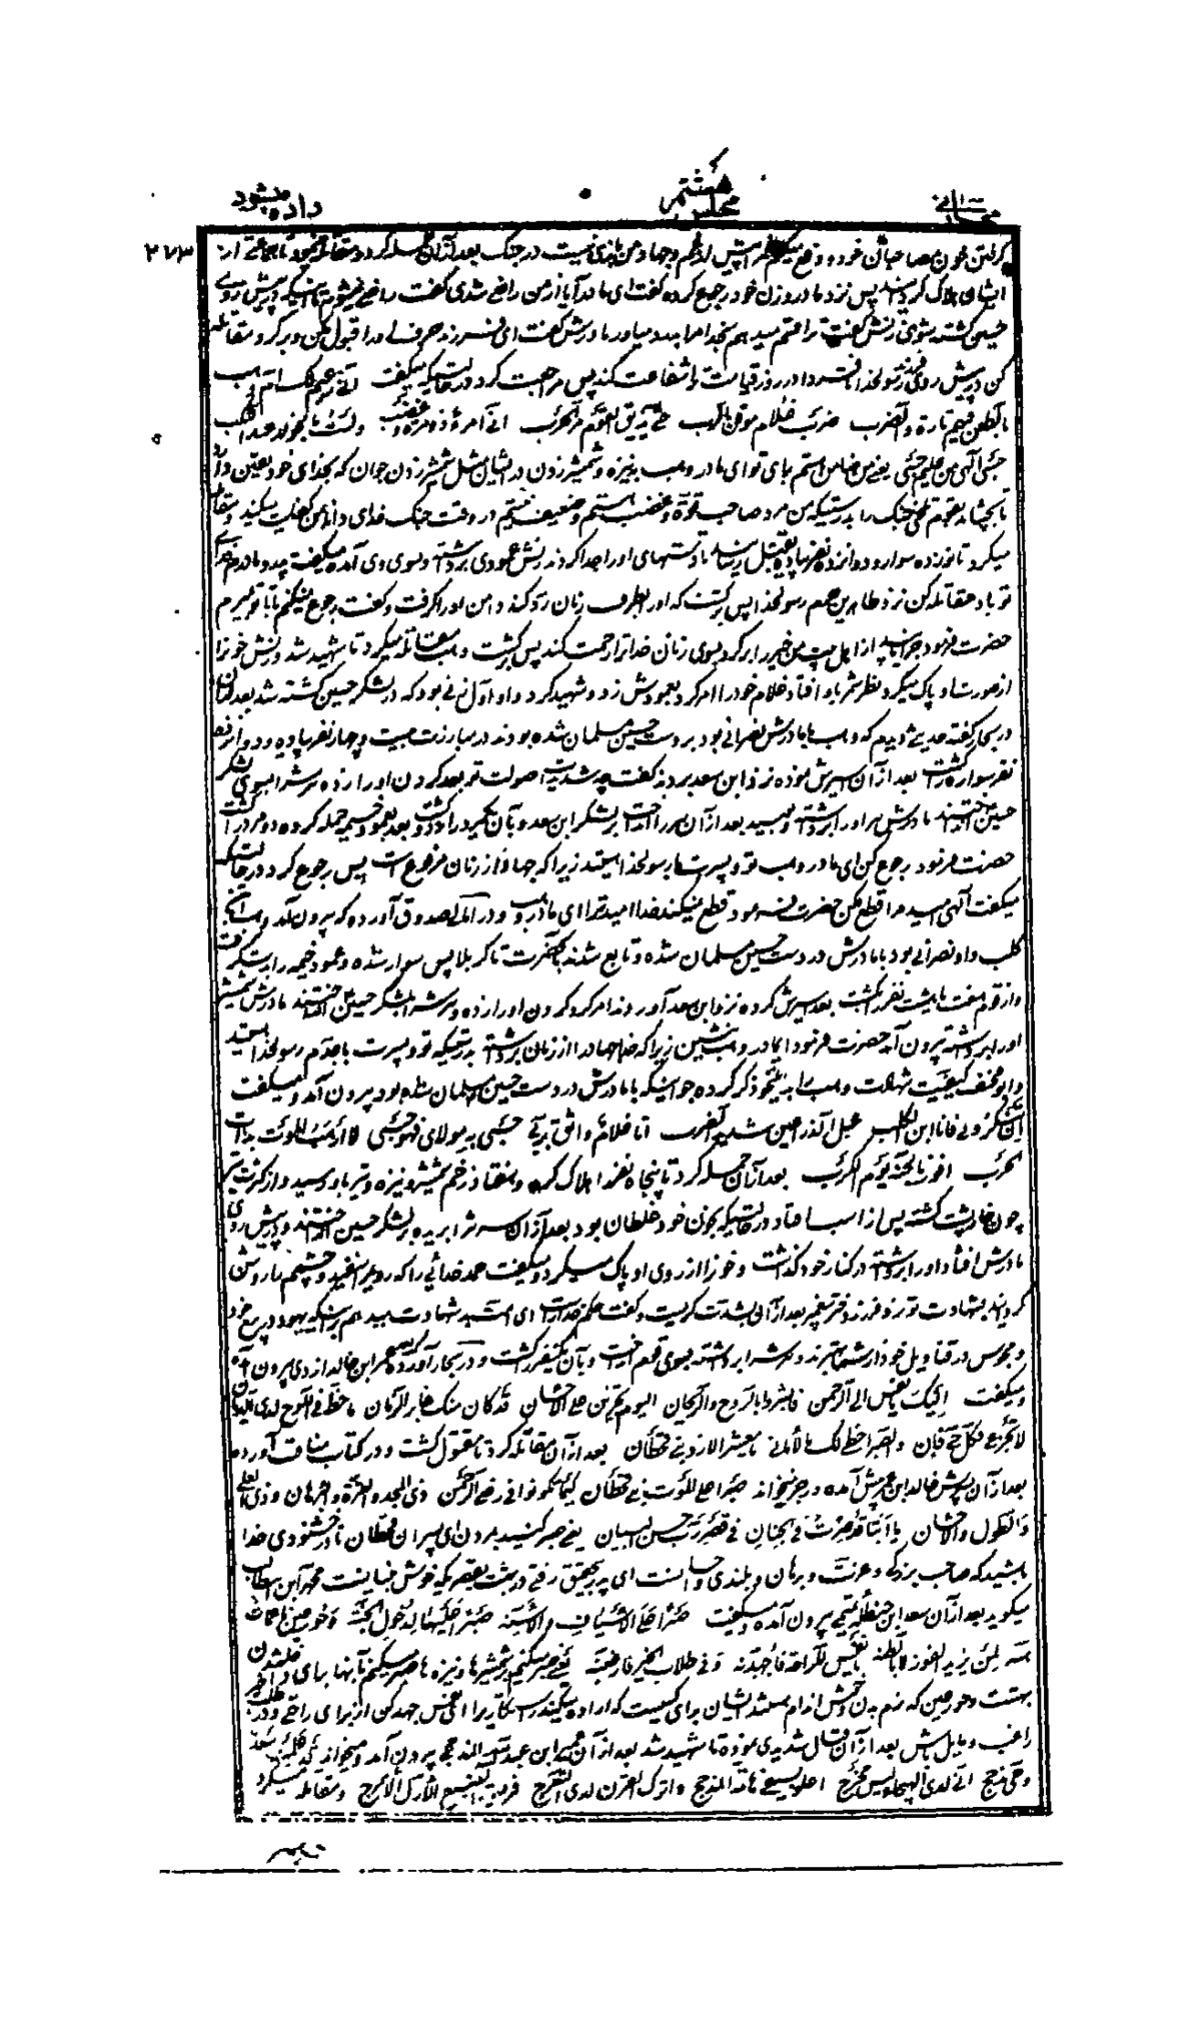 مجلس هشتم
داده میشود
۲۷۳
ایشان هلاک کردانید پس نزد مادر و زن خود رجوع کرده گفت ای مادر آیا از من راضی شدی گفت راضی نمیشوم تا اینکه در پیش روی
حسین کشته شوی زنش گفت ترا قسم میدهم بخدا مرا بدرد میاور مادرش گفت ای فرزند حرف او را قبول مکن و برگرد و مقاتله
کن در پیش روی فرزند رسولخدا تا فردا در روز قیامت ترا شفاعت کند پس مراجعت کرد در حالتیکه میگفت انی زعیم لک ام وهب
بالطعن فیهم تارة والضرب ضرب غلام موقن بالرب حتی یذیق القوم مر الحرب انی امرؤ ذو مرة و غضب ولست بالخوار عند النکب
حسبی الهی من علیم حسبی یعنی من ضامن هستم برای تو ای مادر وهب به نیزه و شمشیر زدن در ایشان مثل شمشیر زدن جوان که بخدای خود یقین دارد
تا بچشاند بقوم تلخی جنک را بدرستیکه من مرد صاحب قوة و غضب هستم و ضعیف نیستم در وقت جنک خدای دانا مرا کفایت میکند و مقاتله
میکرد تا نوزده سواره و دوازده نفر پیاده بقتل رسانید تا دستهای او را جدا کردند زنش عمودی برداشته و بسوی وی آمده میگفت پدر و مادرم فدای
تو باد مقاتله کن نزد طاهرین حرم رسولخدا پس برگشت که او را بطرف زنان رد کند دامن او را گرفت و گفت رجوع نمیکنم تا با تو بمیرم
حضرت فرمود جزا بینید از اهل بیت من خیر را برگرد بسوی زنان خدا ترا رحمت کند پس برگشت و وهب مقاتله میکرد تا شهید شد و زنش خونرا
از صورت او پاک میکرد نظر شمر باو افتاد غلام خود را امر کرد بعمودش زد و شهید کرد و او اول زنی بود که در لشکر حسین کشته شد بعد از آن
در بحار گفته حدیثی دیدم که وهب با مادرش نصرانی بود بر دست حسین مسلمان شده بودند در مبارزت بیست و چهار نفر پیاده و دوازده
نفر سواره کشت بعد از آن اسیرش نموده نزد ابن سعد بردند گفت چه شدید است صولت تو بعد گردن او را زده سرش را بسوی لشکر
حسین انداختند مادرش سر او را برداشته و بوسید بعد از آن سر را انداخت بر لشکر ابن سعد و بآن یکمرد را کشت و بعد بعمود خیمه حمله کرده دو مرد را کشت
حضرت فرمود رجوع کن ای مادر وهب تو و پسرت با رسولخدا هستید زیرا که جهاد از زنان مرفوع است پس رجوع کرد در حالتیکه
میگفت الهی امید مرا قطع مکن حضرت فرمود قطع نمیکند خدا امید ترا ای مادر وهب و در امالی صدوق آورده که بیرون آمد وهب ابن
کلب و او نصرانی بود با مادرش در دست حسین مسلمان شده و تابع شدند بآنحضرت تا کربلا پس سوار شده و عمود خیمه را برگرفت
و از قوم هفت یا هشت نفر کشت بعد اسیرش کرده نزد ابن سعد آوردند امر کرد گردن او را زده و سرش را بلشکر حسین انداختند مادرش شمشیر
او را برداشته بیرون آمد حضرت فرمود ای مادر وهب بنشین زیرا که خدا جهاد را از زنان برداشته بدرستیکه تو و پسرت با جدم رسولخدا هستید
و ابو مخنف کیفیت شهادت وهب را بدینگونه ذکر کرده جوانیکه با مادرش در دست حسین مسلمان شده بود بیرون آمد و میگفت
ان تنکرونی فانا ابن الکلب عبل الذراعین شدید الضرب انا غلام واثق بربی حسبی به مولای فهو حسبی لا ارهب الموت بذات
الحرب افوز بالجنة یوم الکرب بعد از آن حمله کرد تا پنجاه نفر را هلاک کرد و هفتاد زخم شمشیر و نیزه و تیر باو رسید و از کثرت تیر
چون خارپشت گشته پس از اسب افتاد در حالتیکه بخون خود غلطان بود بعد از آن سرش را بریده بر لشکر حسین انداختند در پیش روی
مادرش افتاد او را برداشته در کنار خود گذاشت و خونرا از روی او پاک میکرد و میگفت حمد خدائی را که رویم را سفید و چشمم را روشن
گردانید بشهادت تو نزد فرزند دختر پیغمبر بعد از آن بشدت گریست و گفت حکم خداراست ای امت بد شهادت میدهم بر اینکه یهود در بیع خود
و مجوس در قنادیل خود از شما بهترند و سرش را برداشته بسوی قوم انداخت و بآن یکنفر کشت و در بحار آورده که بعد عمر ابن خالد ازدی بیرون آمده
و میگفت الیک یا نفس الی الرحمن فابشری بالروح والریحان الیوم تجزین علی الاحسان قد کان منک غابر الزمان ما خط فی اللوح لدی الدیان
لا تجزعی فکل حی فان والصبر احظی لک بالامانی یا معشر الازد بنی قحطان بعد از آن مقاتله کرد تا مقتول گشت و در کتاب مناقب آورده
بعد از آن پسرش خالد ابن عمر پیش آمده و رجز میخواند صبرا علی الموت بنی قحطان کیما تکونوا فی رضی الرحمن ذی المجد والعزة والبرهان و ذی العلی
والطول والاحسان یا ابتا قد صرت فی الجنان فی قصر رب حسن البنیان یعنی صبر کنید بمردن ای پسران قحطان تا در خشنودی خدا
باشید که صاحب بزرگی و عزت و برهان و بلندی و احسان است ای پدر بتحقیق رفتی در بهشت بقصریکه خوش بنیانست محمد ابن ابیطالب
میگوید بعد از آن سعد ابن حنظله تمیمی بیرون آمده و میگفت صبرا علی الاسیاف والاسنة صبرا علیها لدخول الجنة و حور عین ناعمات
هنه لمن یرید الفوز لا بالظنة یا نفس للراحة فاجهدنه و فی طلاب الخیر فارغبنه یعنی صبر میکنم بر شمشیرها و نیزه ها صبر میکنم بآنها برای داخل شدن
بهشت و حور عین که نرم بدن و خوش اندام هستند ایشان برای کسیست که اراده میکند رستگاریرا ای نفس جهد کن از برای راحتی و در طلب خیر
راغب و مایل باش بعد از آن قتال شدیدی نموده تا شهید شد بعد از آن عمیر ابن عبدالله المذحجی بیرون آمد و میخواند قد علمت سعد
و حی مذحج انی لدی الهیجاء لیث محرج اعلو بسیفی هامة المدجج و اترک القرن لدی التعرج فریسة الضبع الازل الاعرج و مقاتله میکرد